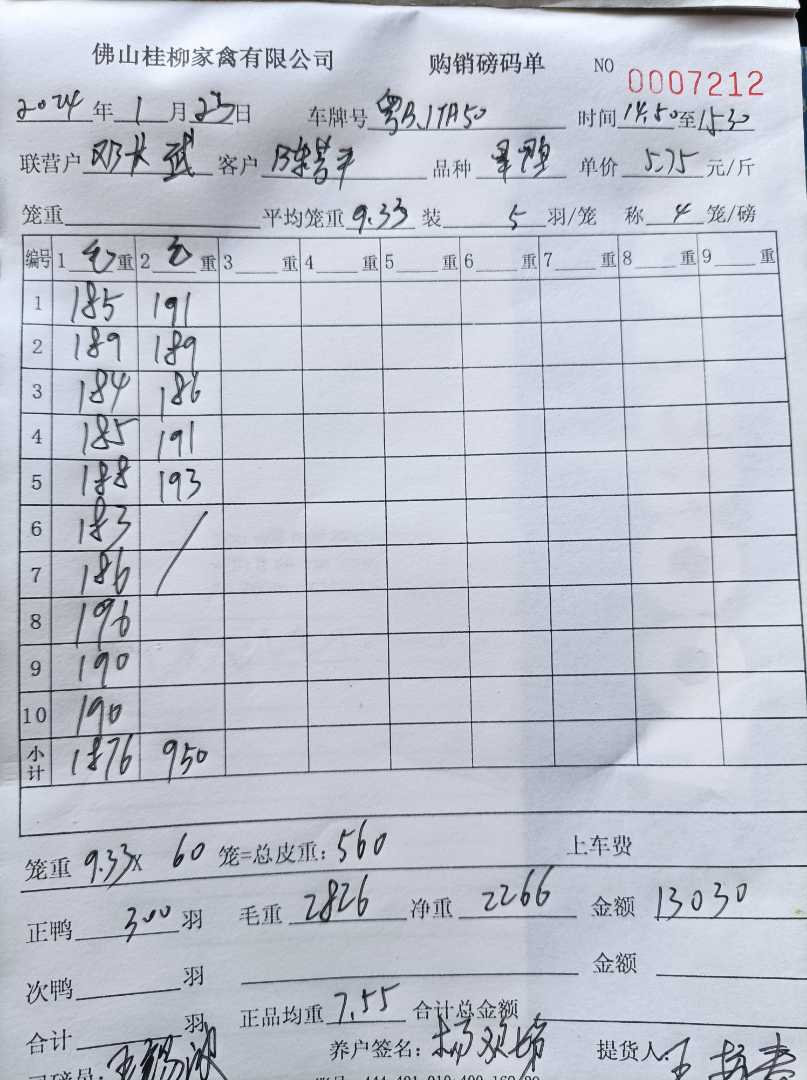 佛山桂柳家禽有限公司 购销磅码单 NO 0007212
2024 年 1 月 23 日 车牌号 粤B.1TA50 时间 14.50 至 15.30
联营户 邓长武 客户 陈 平 品种 单价 5.75 元/斤
笼重 平均笼重 9.33 装 5 羽/笼 称 4 笼/磅
编号 1 毛 重 2 毛 重 3 重 4 重 5 重 6 重 7 重 8 重 9 重
1 185 191
2 189 189
3 184 186
4 185 191
5 188 193
6 183
7 186
8 196
9 190
10 190
小计 1876 950
笼重 9.33 X 60 笼=总皮重: 560 上车费
正鸭 300 羽 毛重 2826 净重 2266 金额 13030
次鸭 羽 金额
合计 羽 正品均重 7.55 合计总金额
司磅员: 养户签名: 杨双 提货人: 王